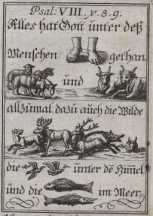 Psal: VIII, v. 8. 9.
Alles hat Gott unter deß
Menschen gethan.
und
allzumal dazu auch die Wilde
die unter dẽ Himel
und die im Meer,